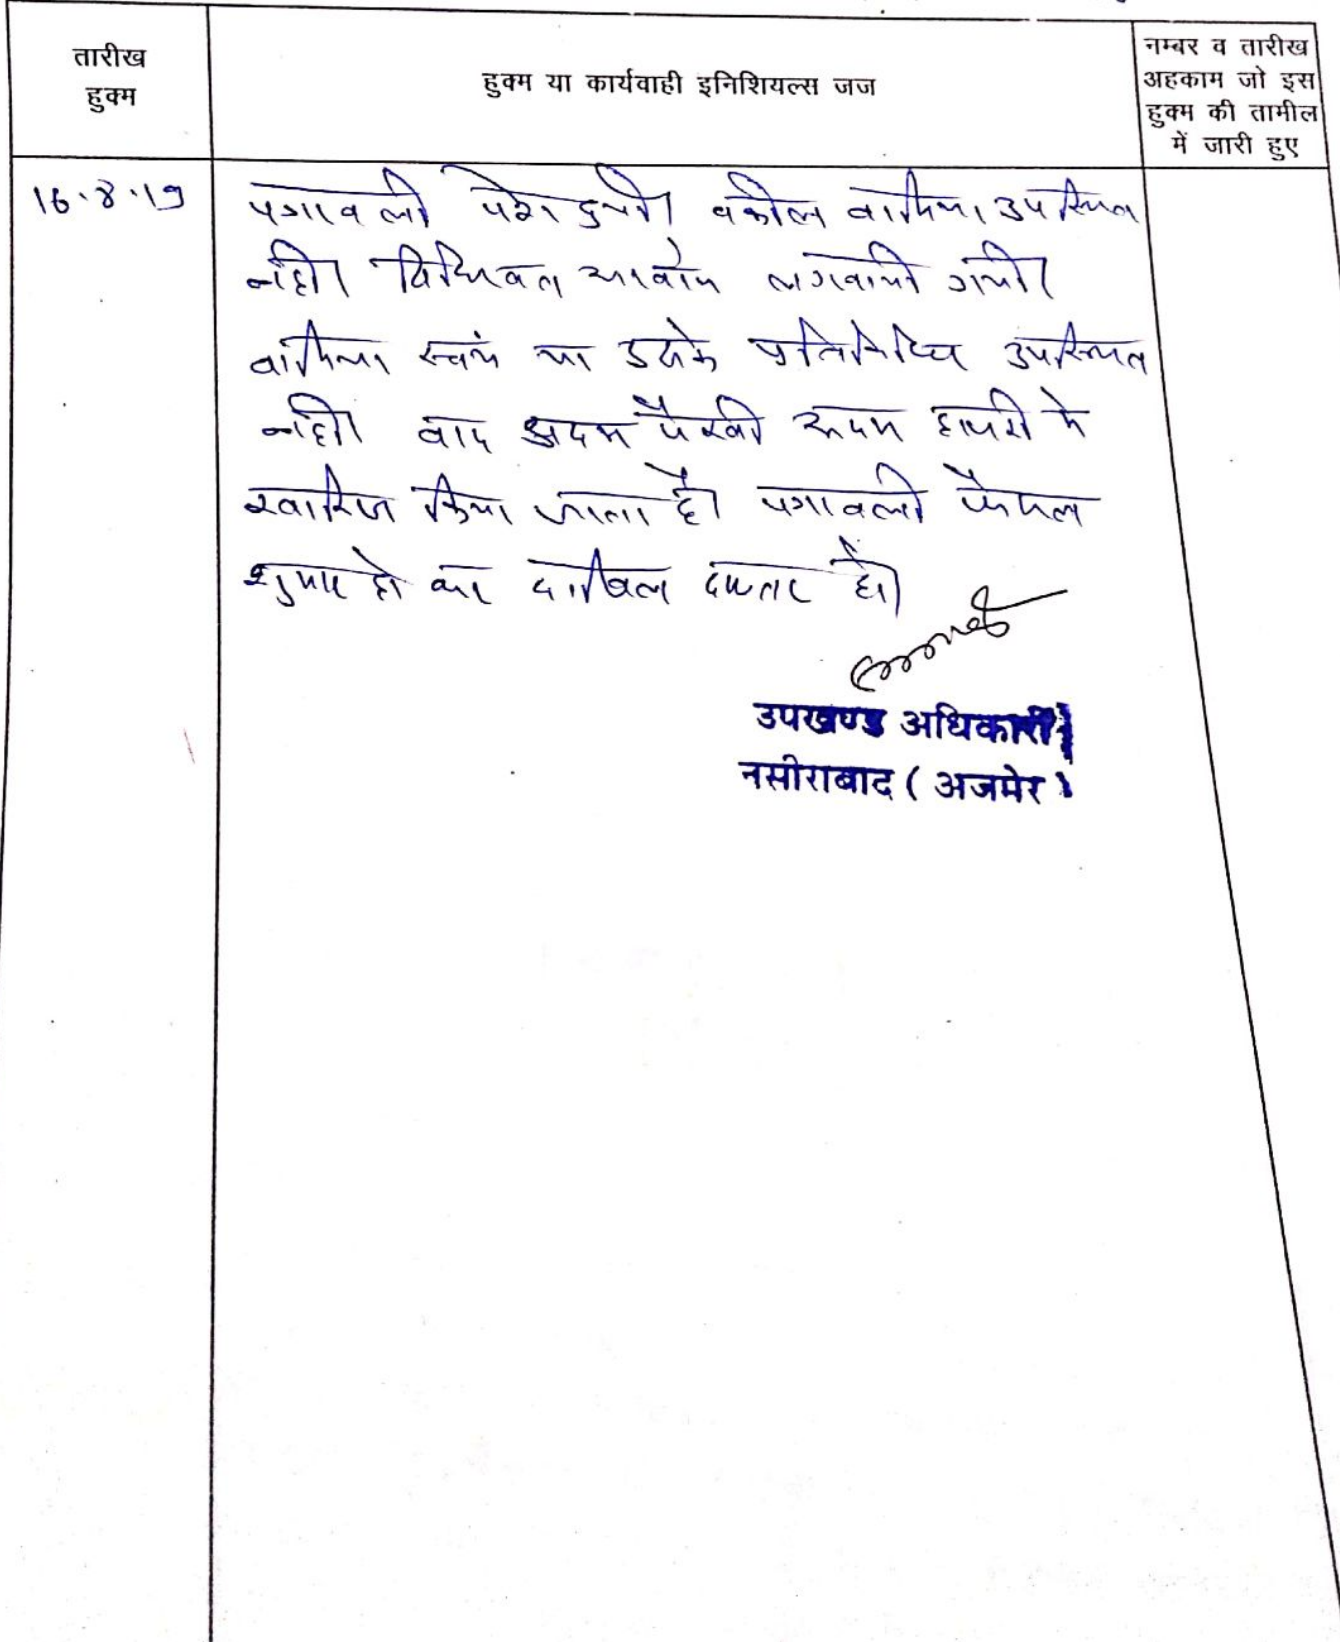 तारीख
हुक्म
हुक्म या कार्यवाही इनिशियल्स जज
नम्बर व तारीख
अहकाम जो इस
हुक्म की तामील
में जारी हुए
16.8.19
पत्रावली पेश हुयी। वकील वादिया उपस्थित
नही। विधिवत आवाज लगवायी गयी।
वादिया स्वयं या उसके प्रतिनिधि उपस्थित
नही। वाद अदम पैरवी अदम हाजरी मे
खारिज किया जाता है। पत्रावली फैसल
शुमार हो कर दाखिल दफ्तर हो।
उपखण्ड अधिकारी
नसीराबाद ( अजमेर )